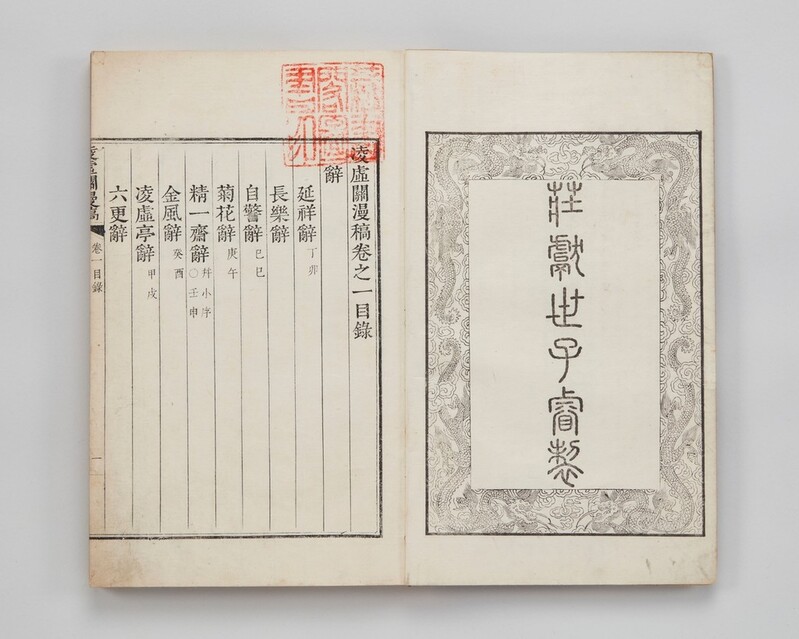 莊獻世子睿製
凌虛關漫稿卷之一目錄
辭
延祥辭 丁卯
長樂辭
自警辭 己巳
菊花辭 庚午
精一齋辭 幷小序〇壬申
金風辭 癸酉
凌虛亭辭 甲戌
六更辭
凌虛關漫稿 卷一目錄 一